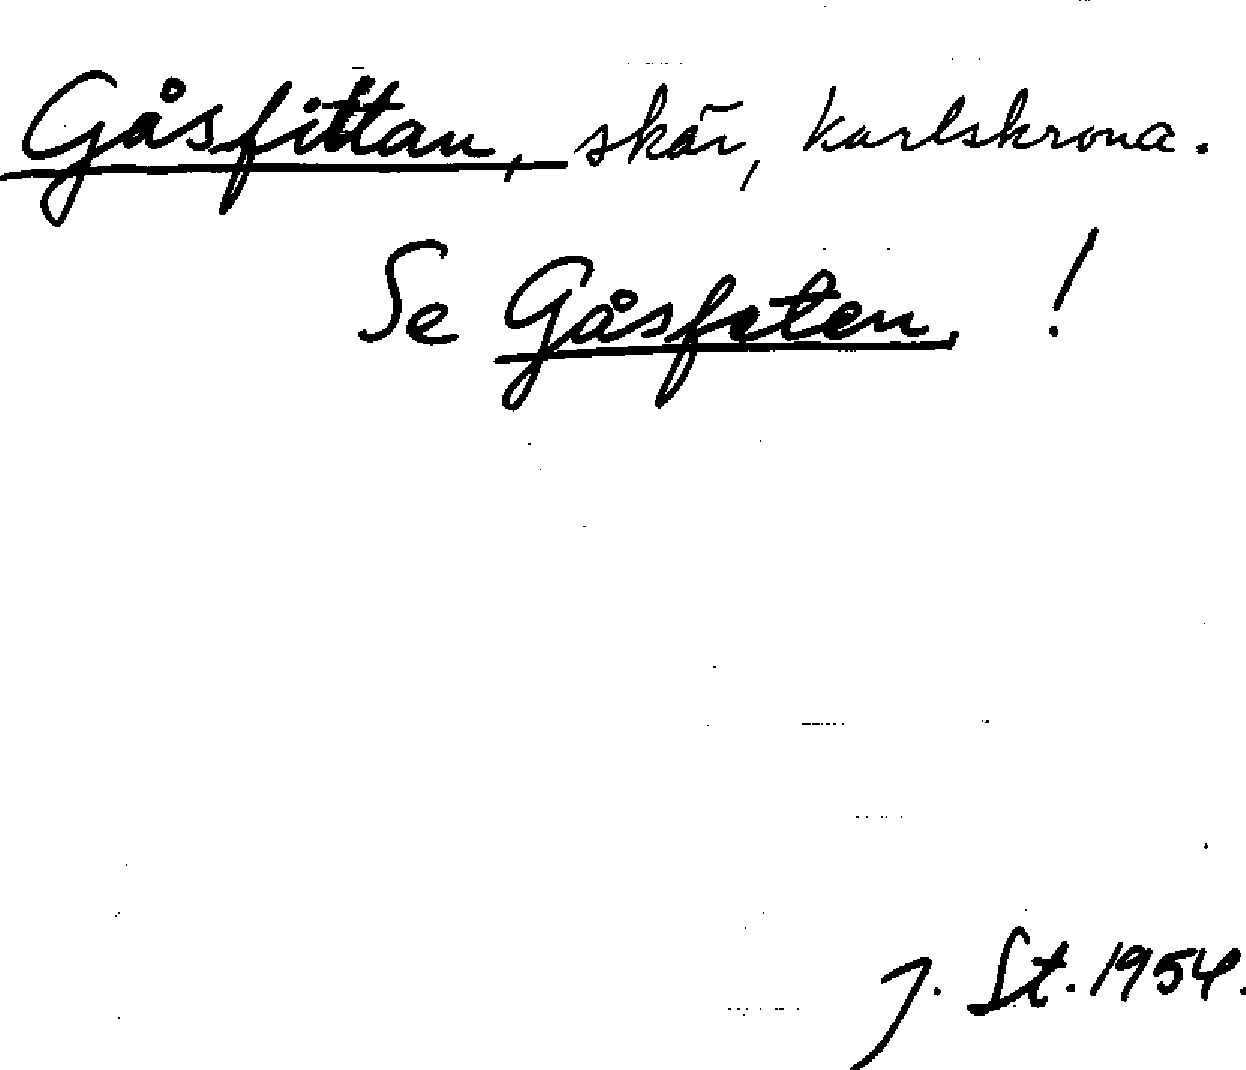 Gåsfittan, skär, Karlskrona.
Se Gåsfeten. !
J. St. 1954.